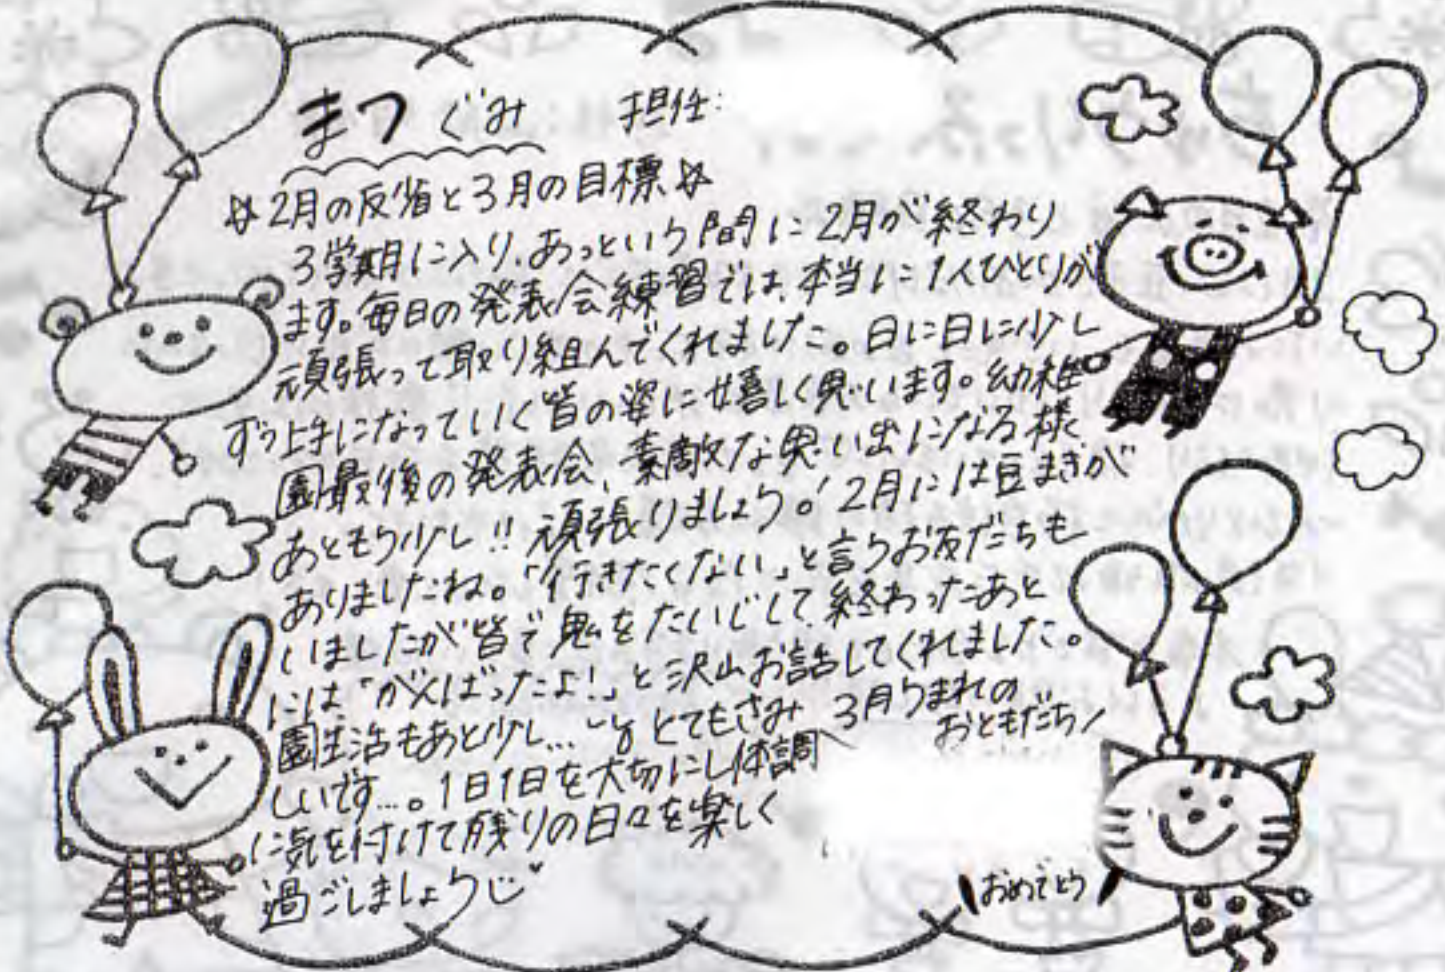 まつ ぐみ 担任:
☆2月の反省と3月の目標☆
3学期に入り、あっという間に2月が終わり
ます。毎日の発表会練習では、本当に1人ひとりが
頑張って取り組んでくれました。日に日に少し
ずつ上手になっていく皆の姿に嬉しく思います。幼稚
園最後の発表会、素敵な思い出になる様
あともう少し!!頑張りましょう!2月には豆まきが
ありましたね。「行きたくない」と言うお友だちも
いましたが皆で鬼をたいじして、終わったあと
には「がんばったよ!」と沢山お話してくれました。
園生活もあと少し...とてもさみ
しいです...。1日1日を大切にし体調
に気を付けて残りの日々を楽しく
過ごしましょう
3月うまれの
おともだち
おめでとう